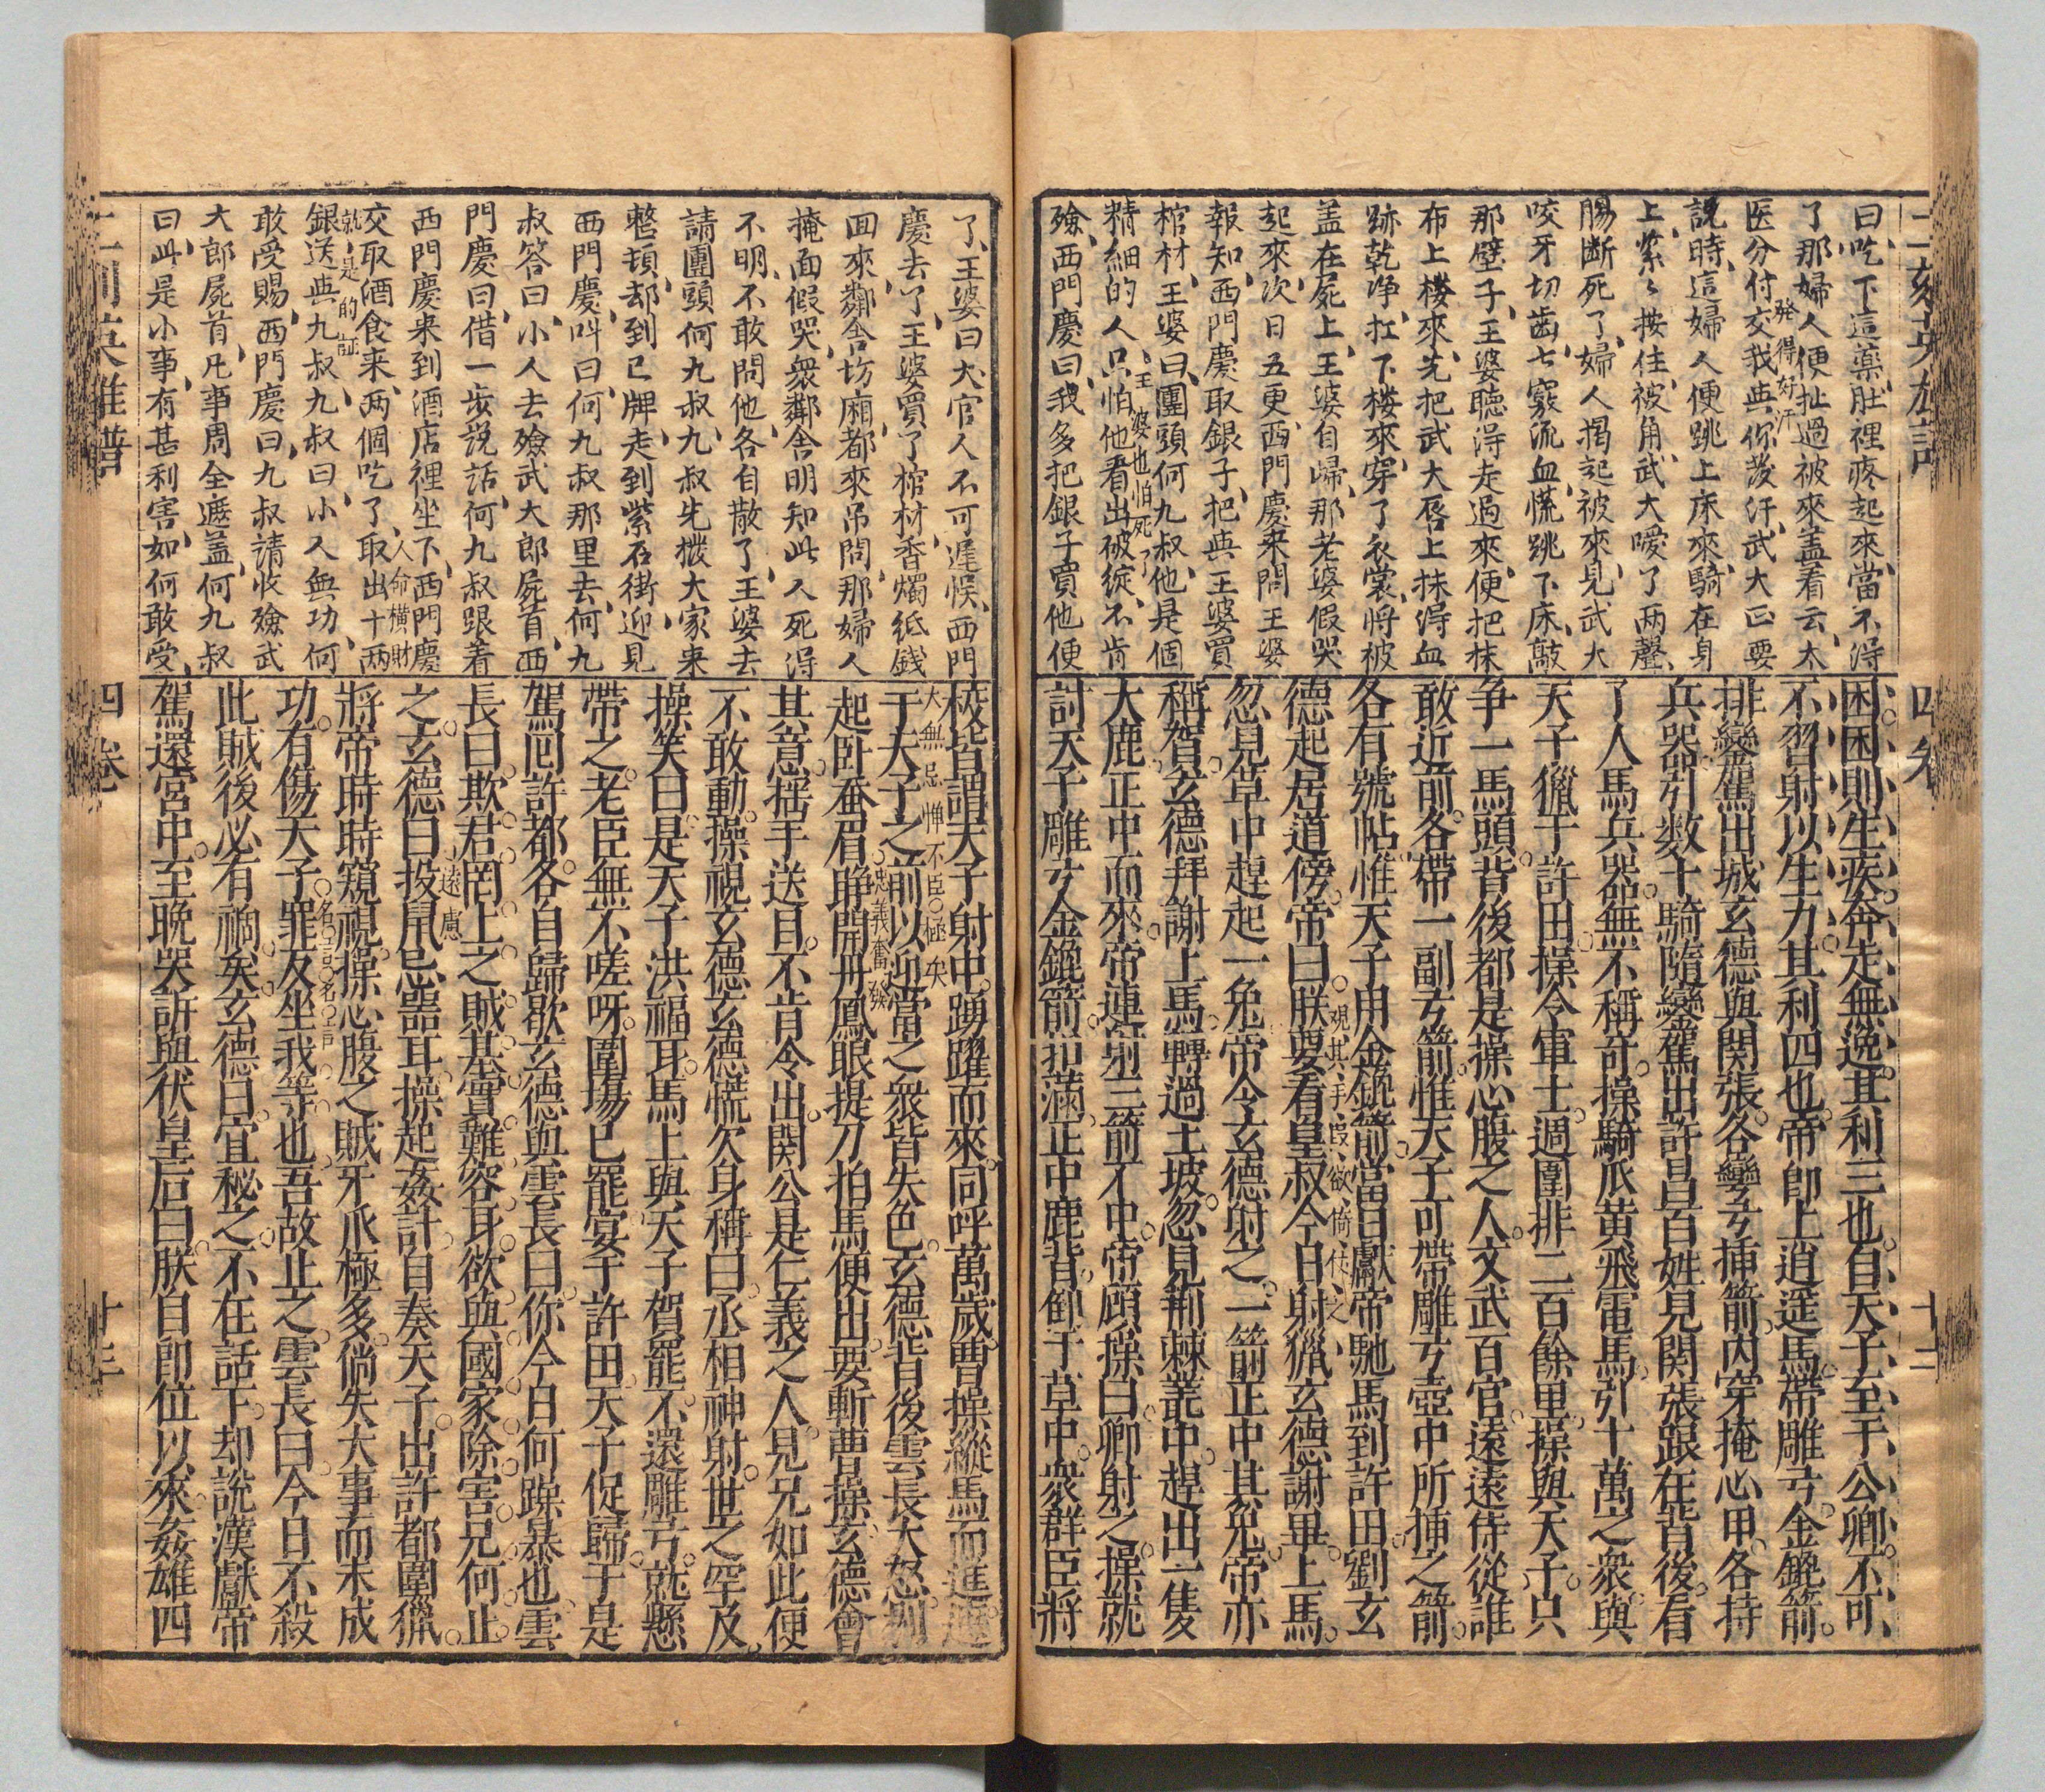 曰、吃下這藥、肚裡疼起來、當不淂
了、那婦人便扯過被來蓋着云、太
發得好汗
医分付、交我與你發汗、武大正要
說時、這婦人便跳上床來、騎在身
上、紧々按住被角、武大噯了两聲、
腸断死了、婦人揭起被來、見武大
咬牙切齒、七竅流血、慌跳下床、敲
那壁子、王婆聽淂走過來、便把抹
布上楼來、先把武大唇上抹淂血
跡乾净、扛下楼來、穿了衣裳、将被
盖在屍上、王婆自歸、那老婆假哭
起來、次日五更、西門慶来問王婆
報知、西門慶取銀子、把與王婆買
棺材、王婆曰、團頭何九叔、他是個
王婆也怕死了
精細的人、只怕他看出破綻、不肯
殮、西門慶曰、我多把銀子買他便
困、困則生疾、奔走無逸、其利三也、自天子至于公卿、不可
不習射以生力、其利四也、帝即上逍遥馬、帶雕弓金鈚箭、
排鑾駕出城、玄德與関張各彎弓揷箭、内穿掩心甲、各持
兵器、引数十騎随鑾駕出許昌、百姓見関張跟在背後、看
了人馬兵器、無不稱奇、操騎爪黄飛電馬、引十萬之衆、與
天子獵于許田、操令軍士週圍排二百餘里、操與天子只
争一馬頭、背後都是操心腹之人、文武百官遠遠侍從、誰
敢近前、各帶一副弓箭、惟天子可帶雕弓、壺中所揷之箭、
各有號帖、惟天子用金鈚箭、當日獻帝馳馬到許田、劉玄
觀其手叚欲倚仗之
德起居道傍、帝曰、朕要看皇叔今日射獵、玄德謝畢上馬、
忽見草中趕起一兔、帝令玄德射之、一箭正中其兔、帝亦
稱賀、玄德拜謝上馬、轉過土坡、忽見荆棘叢中、趕出一隻
大鹿、正中而來、帝連射三箭不中、帝顧操曰、卿射之、操就
討天子雕弓金鈚箭、扣滿、正中鹿背、倒于草中、衆群臣將
四卷
十二
了、王婆曰、大官人不可遲悮、西門
慶去了、王婆買了棺材、香燭紙錢
囬來、鄰舍坊廂都來吊問、那婦人
掩面假哭、衆鄰舍明知此人死淂
不明、不敢問他、各自散了、王婆去
請團頭何九叔、九叔先撥大家来
整頓、却到巳牌、走到紫石街、迎見
西門慶、叫曰、何九叔那里去、何九
叔答曰、小人去殮武大郎屍首、西
門慶曰、借一步說話、何九叔跟着
西門慶来到酒店裡坐下、西門慶
人命橫財
交取酒食来、两個吃了、取出十两
就是的証
銀送與九叔、九叔曰、小人無功、何
敢受賜、西門慶曰、九叔請收殮武
大郎屍首、凡事周全遮盖、何九叔
曰、此是小事、有甚利害、如何敢受、
校皆謂天子射中、踴躍而來、同呼萬歲、曹操縱馬而進、遮
大無忌憚不臣極矣
于天子之前以迎當之、衆皆失色、玄德背後雲長大怒、剔
忠義奮發
起卧蚕眉、睁開丹鳳眼、提刀拍馬便出、要斬曹操、玄德會
其意、揺手送目、不肯令出、関公是仁義之人、見兄如此、便
不敢動、操視玄德、玄德慌欠身稱曰、丞相神射、世之罕及、
操笑曰、是天子洪福耳、馬上與天子賀罷、不還雕弓、就懸
帶之、老臣無不嗟呀、圍場已罷、宴于許田、天子促歸、于是
駕囘許都、各自歸歇、玄德與雲長曰、你今日何躁暴也、雲
長曰、欺君罔上之賊、基實難容身、欲與國家除害、兄何止
遠慮
之、玄德曰、投鼠忌噐耳、操起姦計、自奏天子出許都圍獵、
將帝時時窺視、操心腹之賊牙爪極多、倘失大事而未成
名言名言
功、有傷天子、罪及坐我等也、吾故止之、雲長曰、今日不殺
此賊、後必有禍矣、玄德曰、宜秘之、不在話下、却說漢獻帝
駕還宮中、至晚哭訴與伏皇后曰、朕自即位以來、姦雄四
四卷
十三